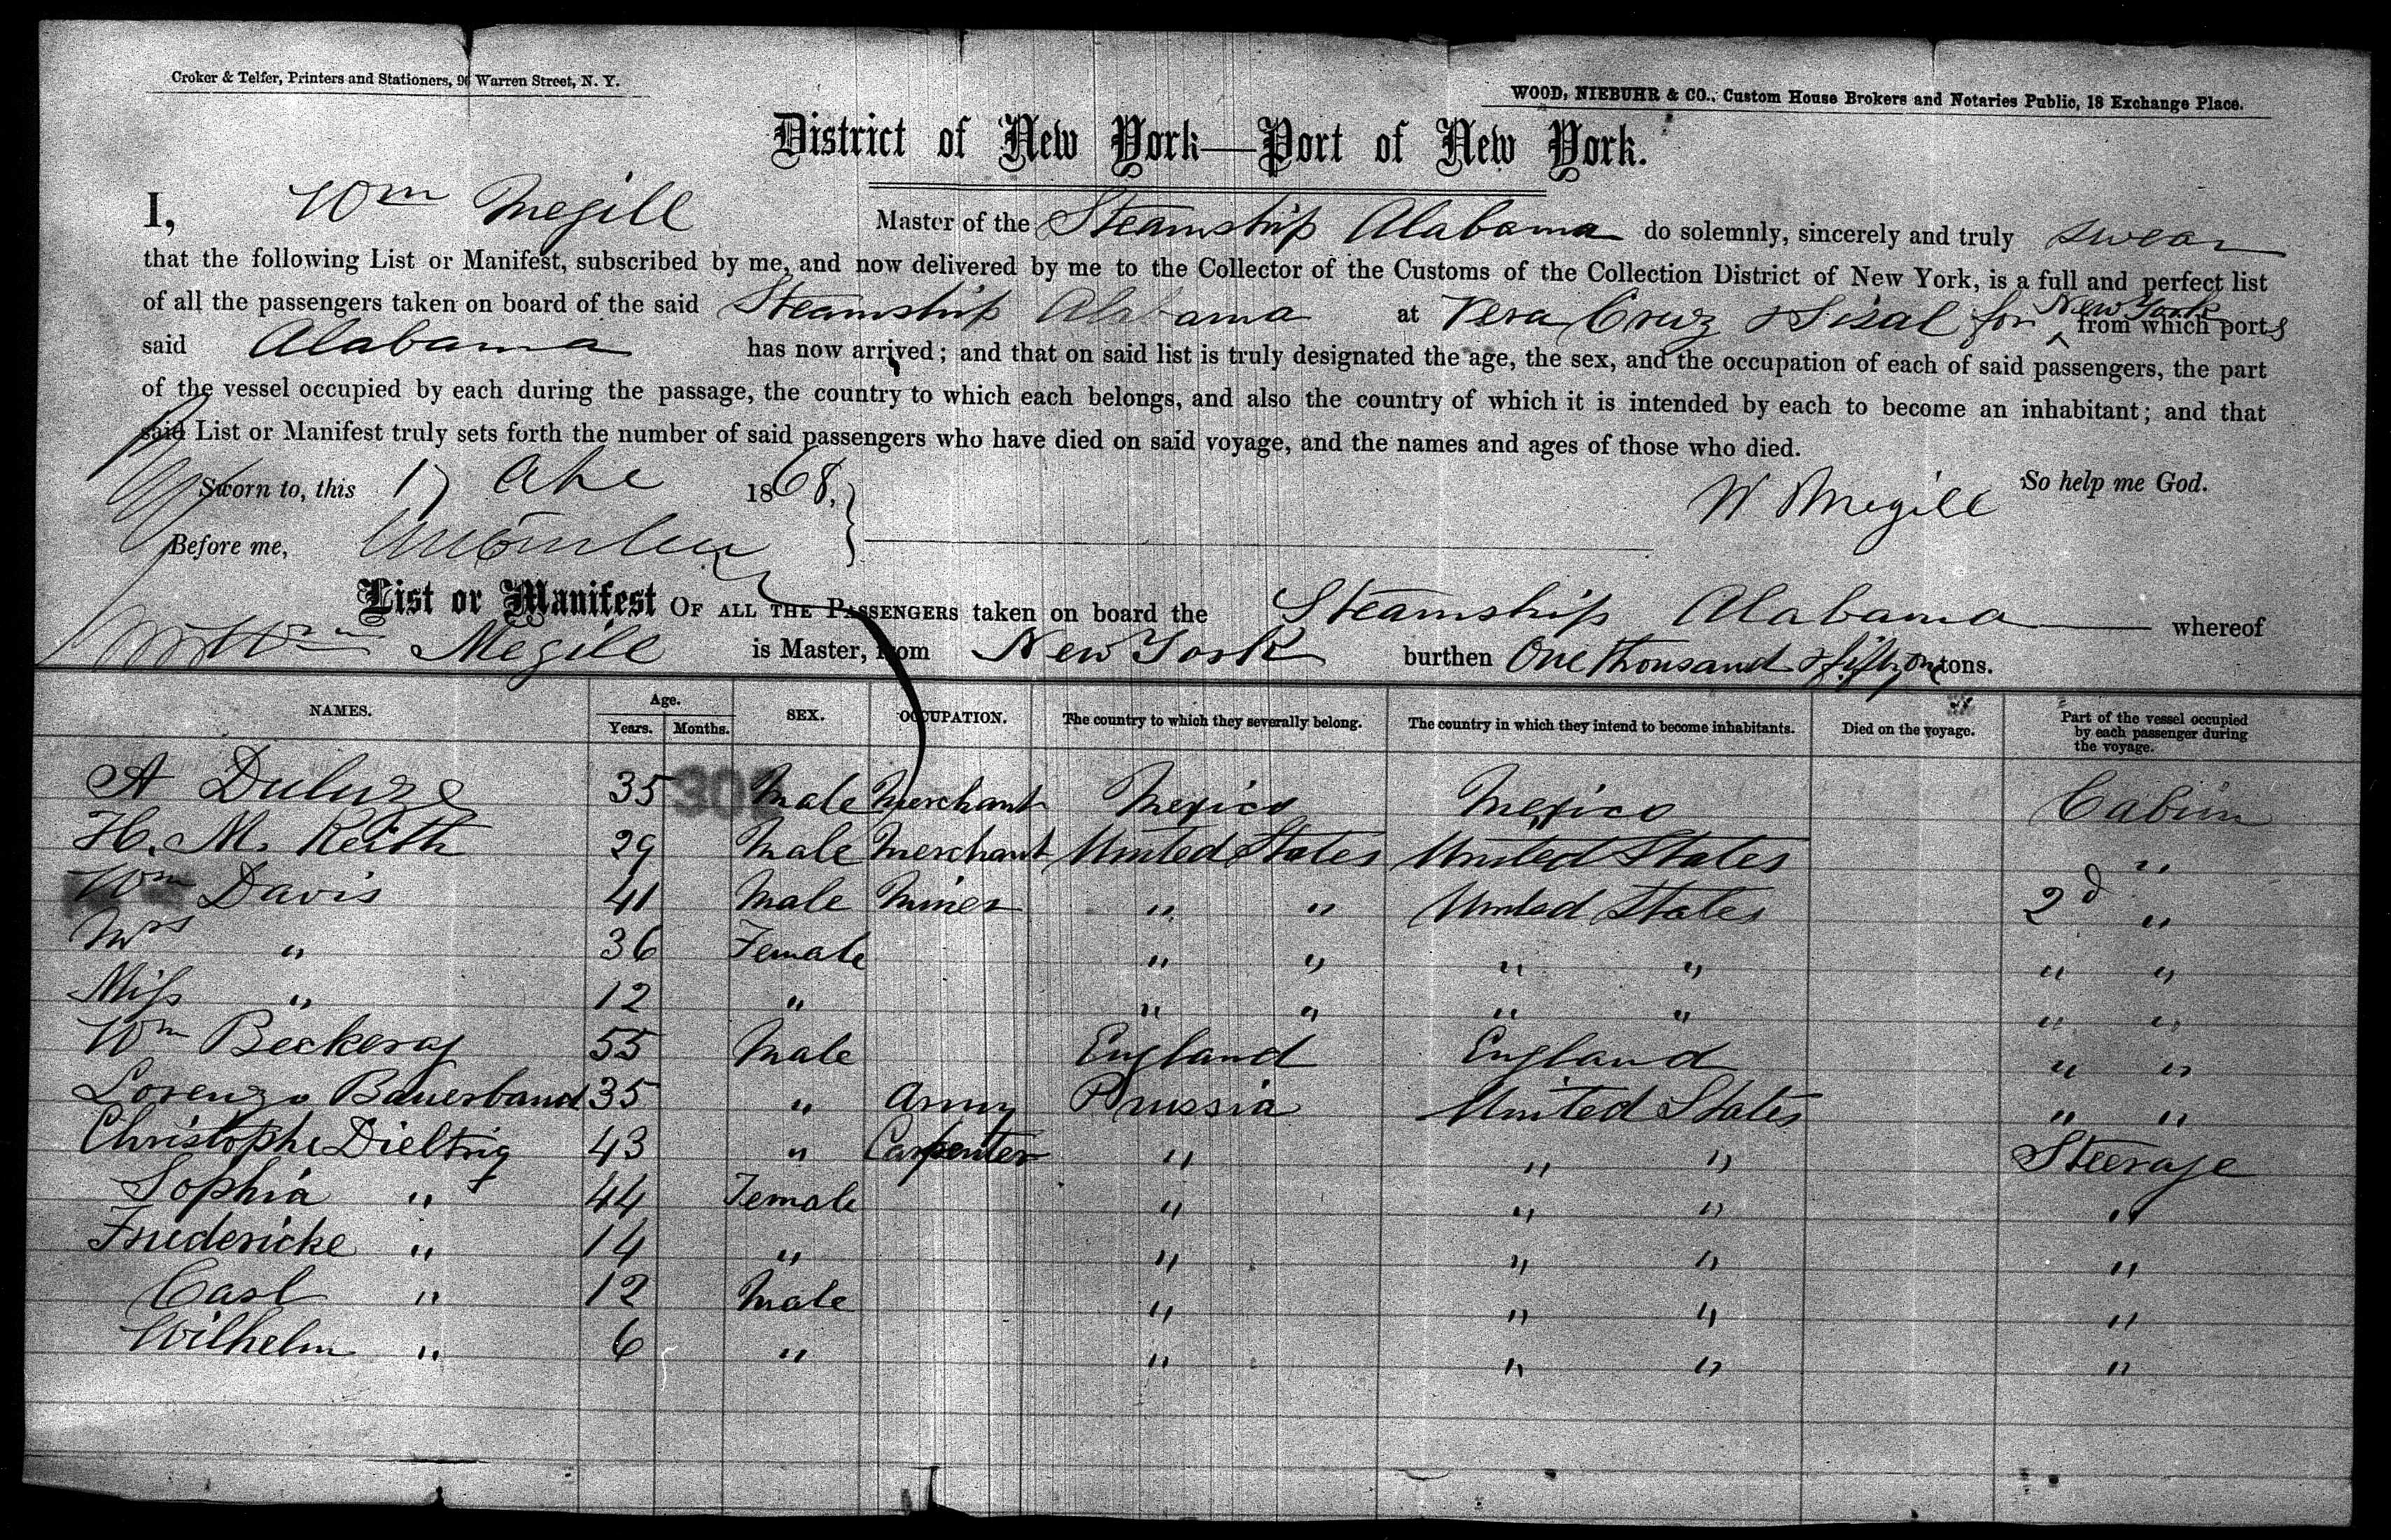 Croker & Telfer, Printers and Stationers, 96 Warren Street, N. Y.
WOOD, NIEBUHR & CO., Custom House Brokers and Notaries Public, 18 Exchange Place.
District of New York—Port of New York.
I, Wm Megill Master of the Steamship Alabama do solemnly, sincerely and truly swear
that the following List or Manifest, subscribed by me, and now delivered by me to the Collector of the Customs of the Collection District of New York, is a full and perfect list
of all the passengers taken on board of the said Steamship Alabama at Vera Cruz & Sisal for New York from which ports
said Alabama has now arrived; and that on said list is truly designated the age, the sex, and the occupation of each of said passengers, the part
of the vessel occupied by each during the passage, the country to which each belongs, and also the country of which it is intended by each to become an inhabitant; and that
said List or Manifest truly sets forth the number of said passengers who have died on said voyage, and the names and ages of those who died.
Sworn to, this 17 1868. W Megill So help me God.
Before me,
List or Manifest OF ALL THE PASSENGERS taken on board the Steamship Alabama whereof
Wm Megill is Master, from New York burthen One Thousand & fifty one tons.
NAMES. Age. Years. Months. SEX. OCCUPATION. The country to which they severally belong. The country in which they intend to become inhabitants. Died on the voyage. Part of the vessel occupied by each passenger during the voyage.
A 35 Male Merchant Mexico Mexico Cabin
H. M. Keith 29 Male Merchant United States United States "
Wm Davis 41 Male Miner " " United States 2d "
Mrs " 36 Female " " " " " "
Miss " 12 " " " " " " "
Wm 55 Male England England " "
Lorenzo Bauerband 35 " Army Prussia United States " "
Christophe Dieltrig 43 " Carpenter " " " Steerage
Sophia " 44 Female " " " "
Fredericke " 14 " " " " "
Carl " 12 Male " " " "
Wilhelm " 6 " " " " "